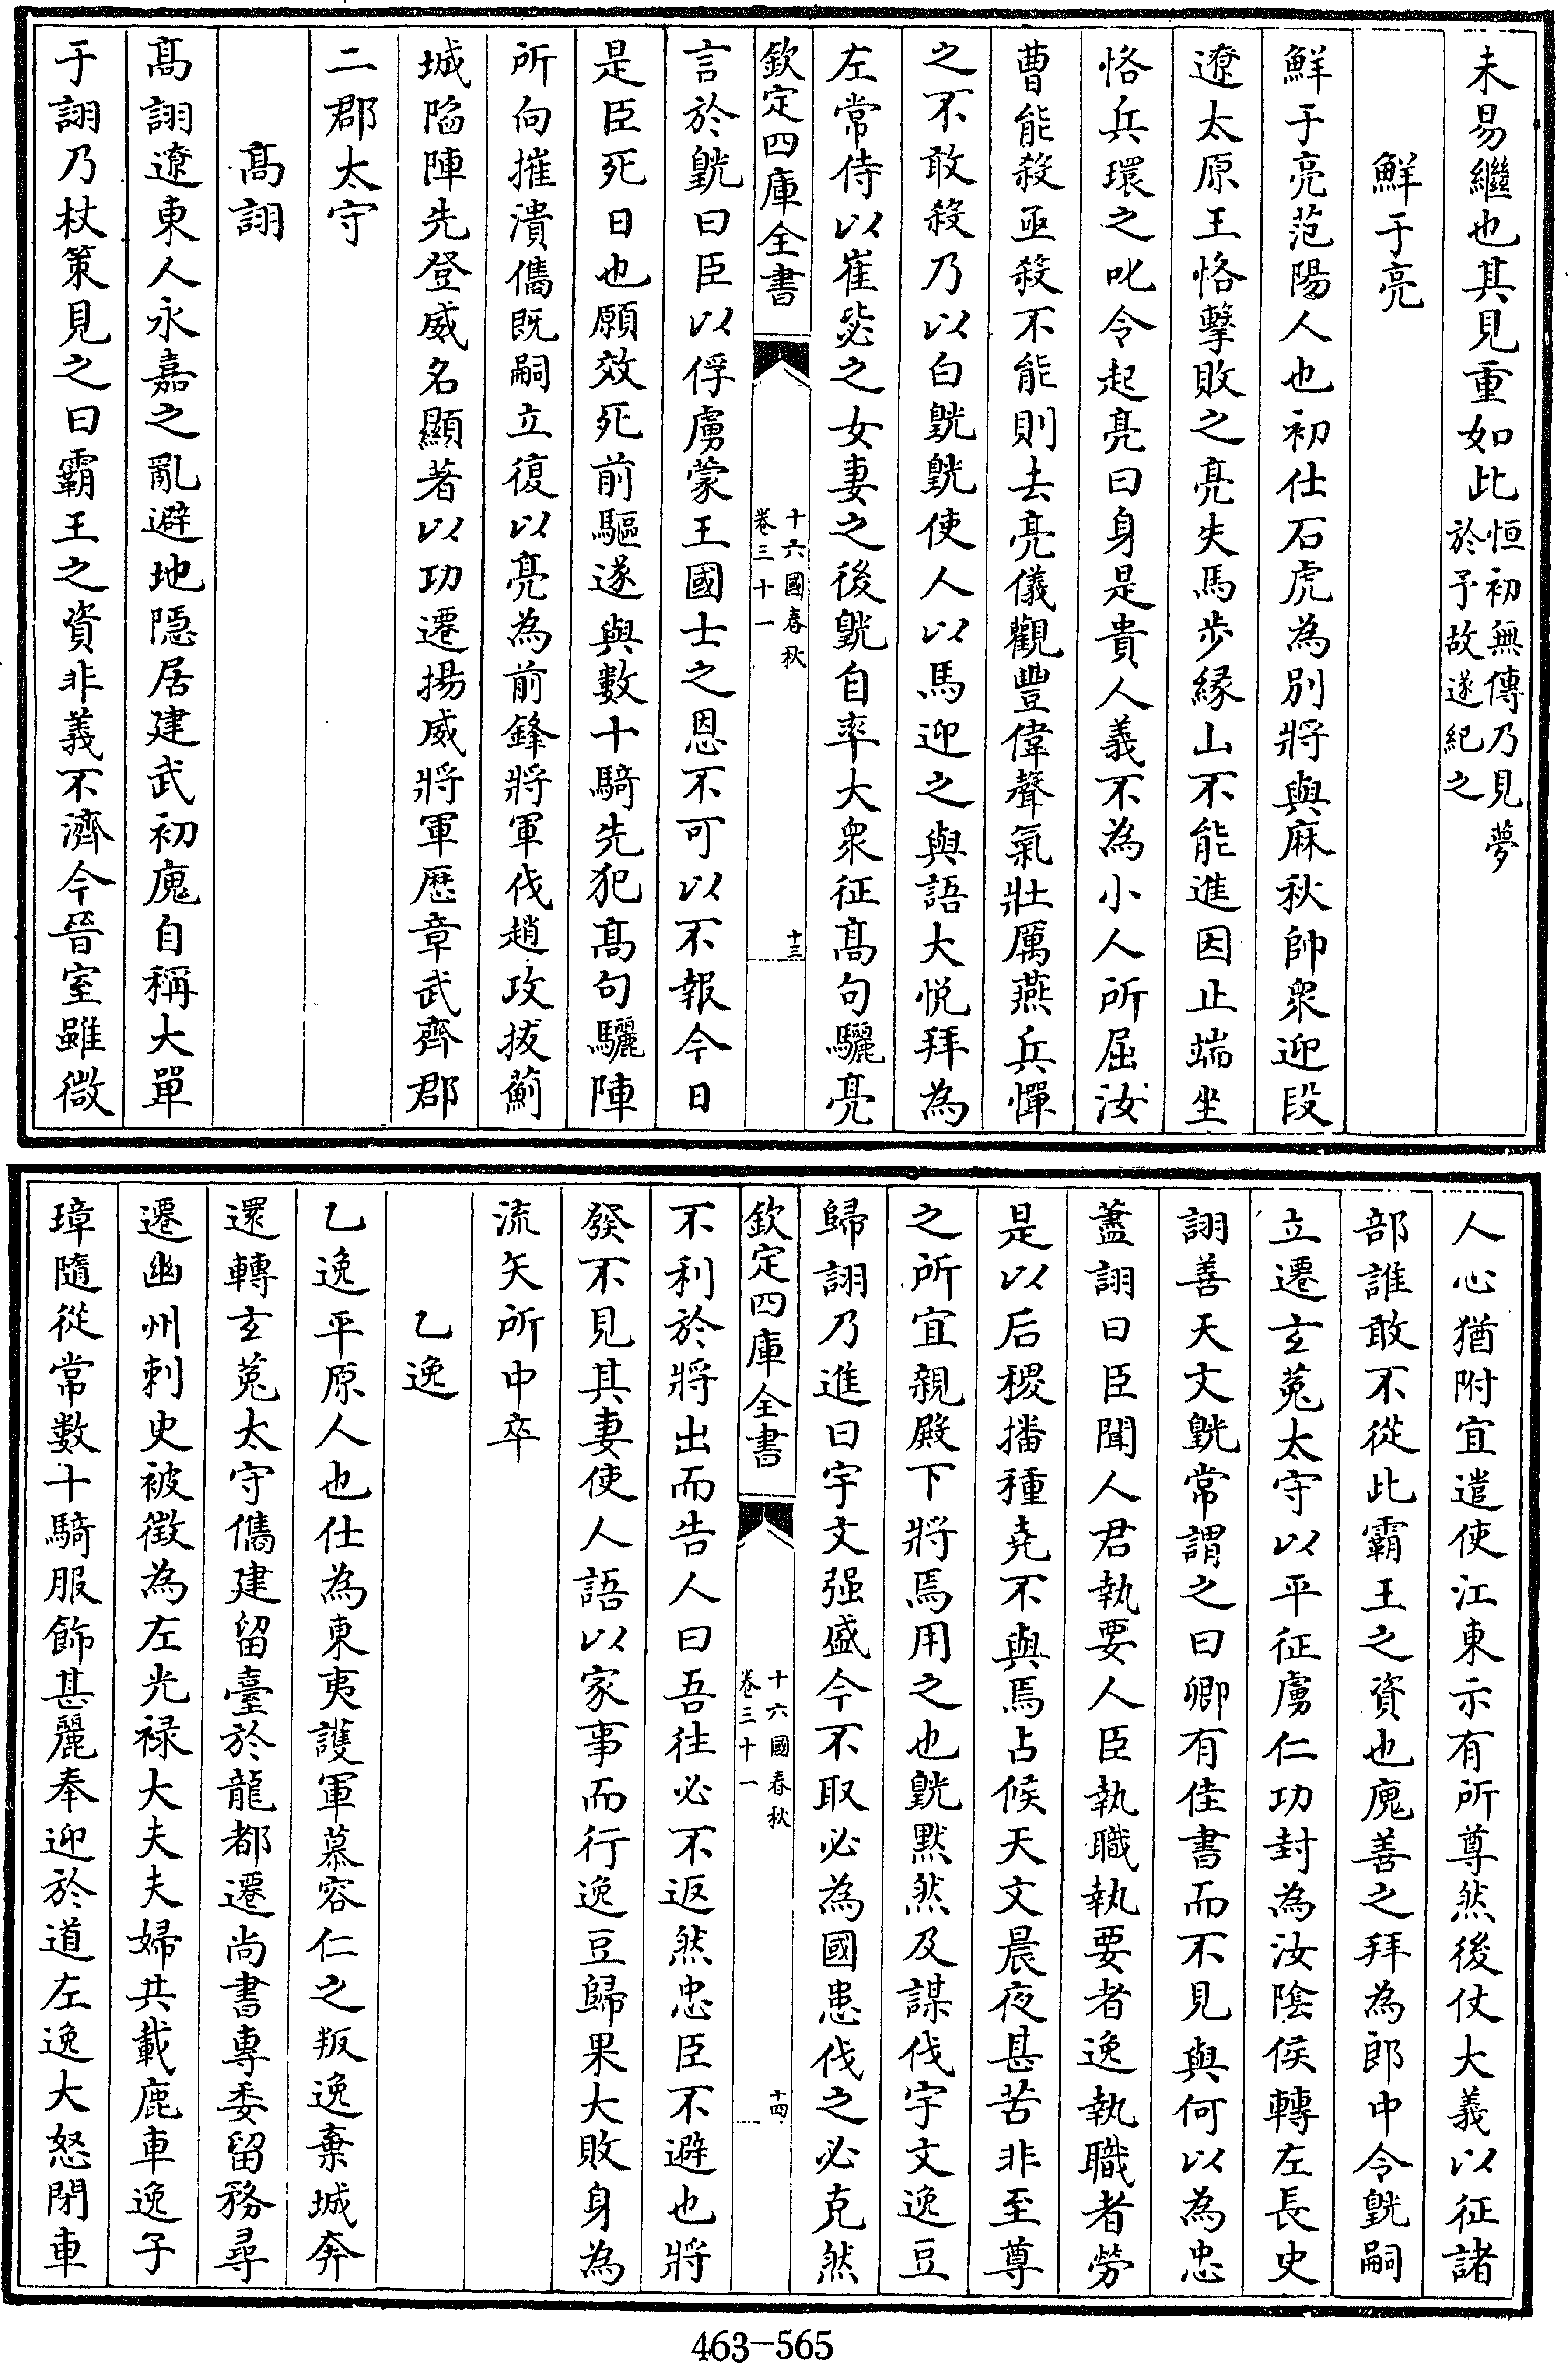 未易繼也其見重如此恒初無傳乃見夢
於予故遂紀之
鮮于亮
鮮于亮范陽人也初仕石虎為別將與麻秋帥衆迎段
遼太原王恪擊敗之亮失馬步縁山不能進因止端坐
恪兵環之叱令起亮曰身是貴人義不為小人所屈汝
曹能殺亟殺不能則去亮儀觀豐偉聲氣壯厲燕兵憚
之不敢殺乃以白皝皝使人以馬迎之與語大悅拜為
左常侍以崔毖之女妻之後皝自率大衆征髙句驪亮
欽定四庫全書
十六國春秋
卷三十一
十三
言於皝曰臣以俘虜蒙王國士之恩不可以不報今日
是臣死日也願效死前驅遂與數十騎先犯髙句驪陣
所向摧潰儁既嗣立復以亮為前鋒將軍伐趙攻拔薊
城陷陣先登威名顯著以功遷揚威將軍歴章武齊郡
二郡太守
髙詡
髙詡遼東人永嘉之亂避地隠居建武初廆自稱大單
于詡乃杖策見之曰霸王之資非義不濟今晉室雖微
人心猶附宜遣使江東示有所尊然後仗大義以征諸
部誰敢不從此霸王之資也廆善之拜為郎中令皝嗣
立遷玄菟太守以平征虜仁功封為汝陰侯轉左長史
詡善天文皝常謂之曰卿有佳書而不見與何以為忠
藎詡曰臣聞人君執要人臣執職執要者逸執職者勞
是以后稷播種堯不與焉占候天文晨夜甚苦非至尊
之所宜親殿下將焉用之也皝默然及謀伐宇文逸豆
歸詡乃進曰宇文强盛今不取必為國患伐之必克然
欽定四庫全書
十六國春秋
卷三十一
十四
不利於將出而告人曰吾往必不返然忠臣不避也將
發不見其妻使人語以家事而行逸豆歸果大敗身為
流矢所中卒
乙逸
乙逸平原人也仕為東夷護軍慕容仁之叛逸棄城奔
還轉玄菟太守儁建留臺於龍都遷尚書專委留務尋
遷幽州刺史被徵為左光禄大夫夫婦共載鹿車逸子
璋隨從常數十騎服飾甚麗奉迎於道左逸大怒閉車
463-565